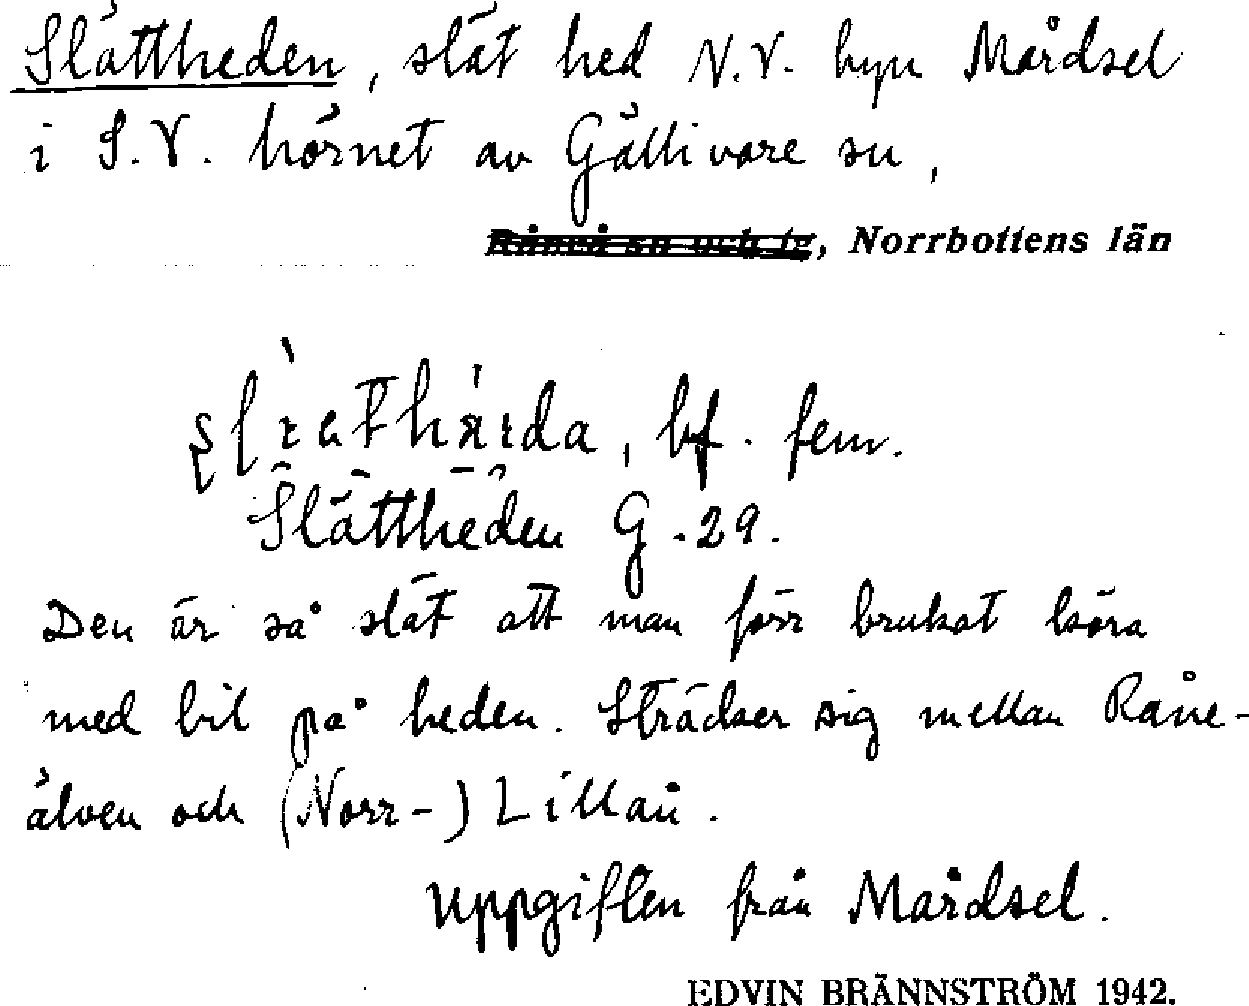 Slättheden, slät hed N.V. byn Mårdsel
i S.V. hörnet av Gällivare sn,
Råneå sn och tg, Norrbottens län
bf. fem.
Slättheden G.29.
Den är så slät att man förr brukat köra
med bil på heden. Sträcker sig mellan Råne-
älven och (Norr-) Lillån.
Uppgiften från Mårdsel.
EDVIN BRÄNNSTRÖM 1942.